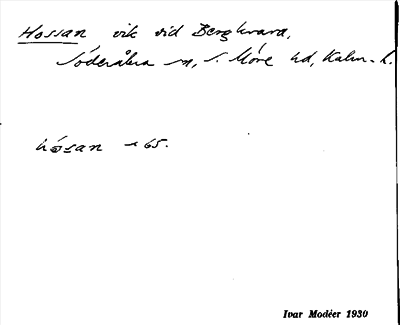 Hossan vik vid Bergkvara,
Söderåkra sn, S. Möre hd, Kalm. l.
65.
Ivar Modéer 1930